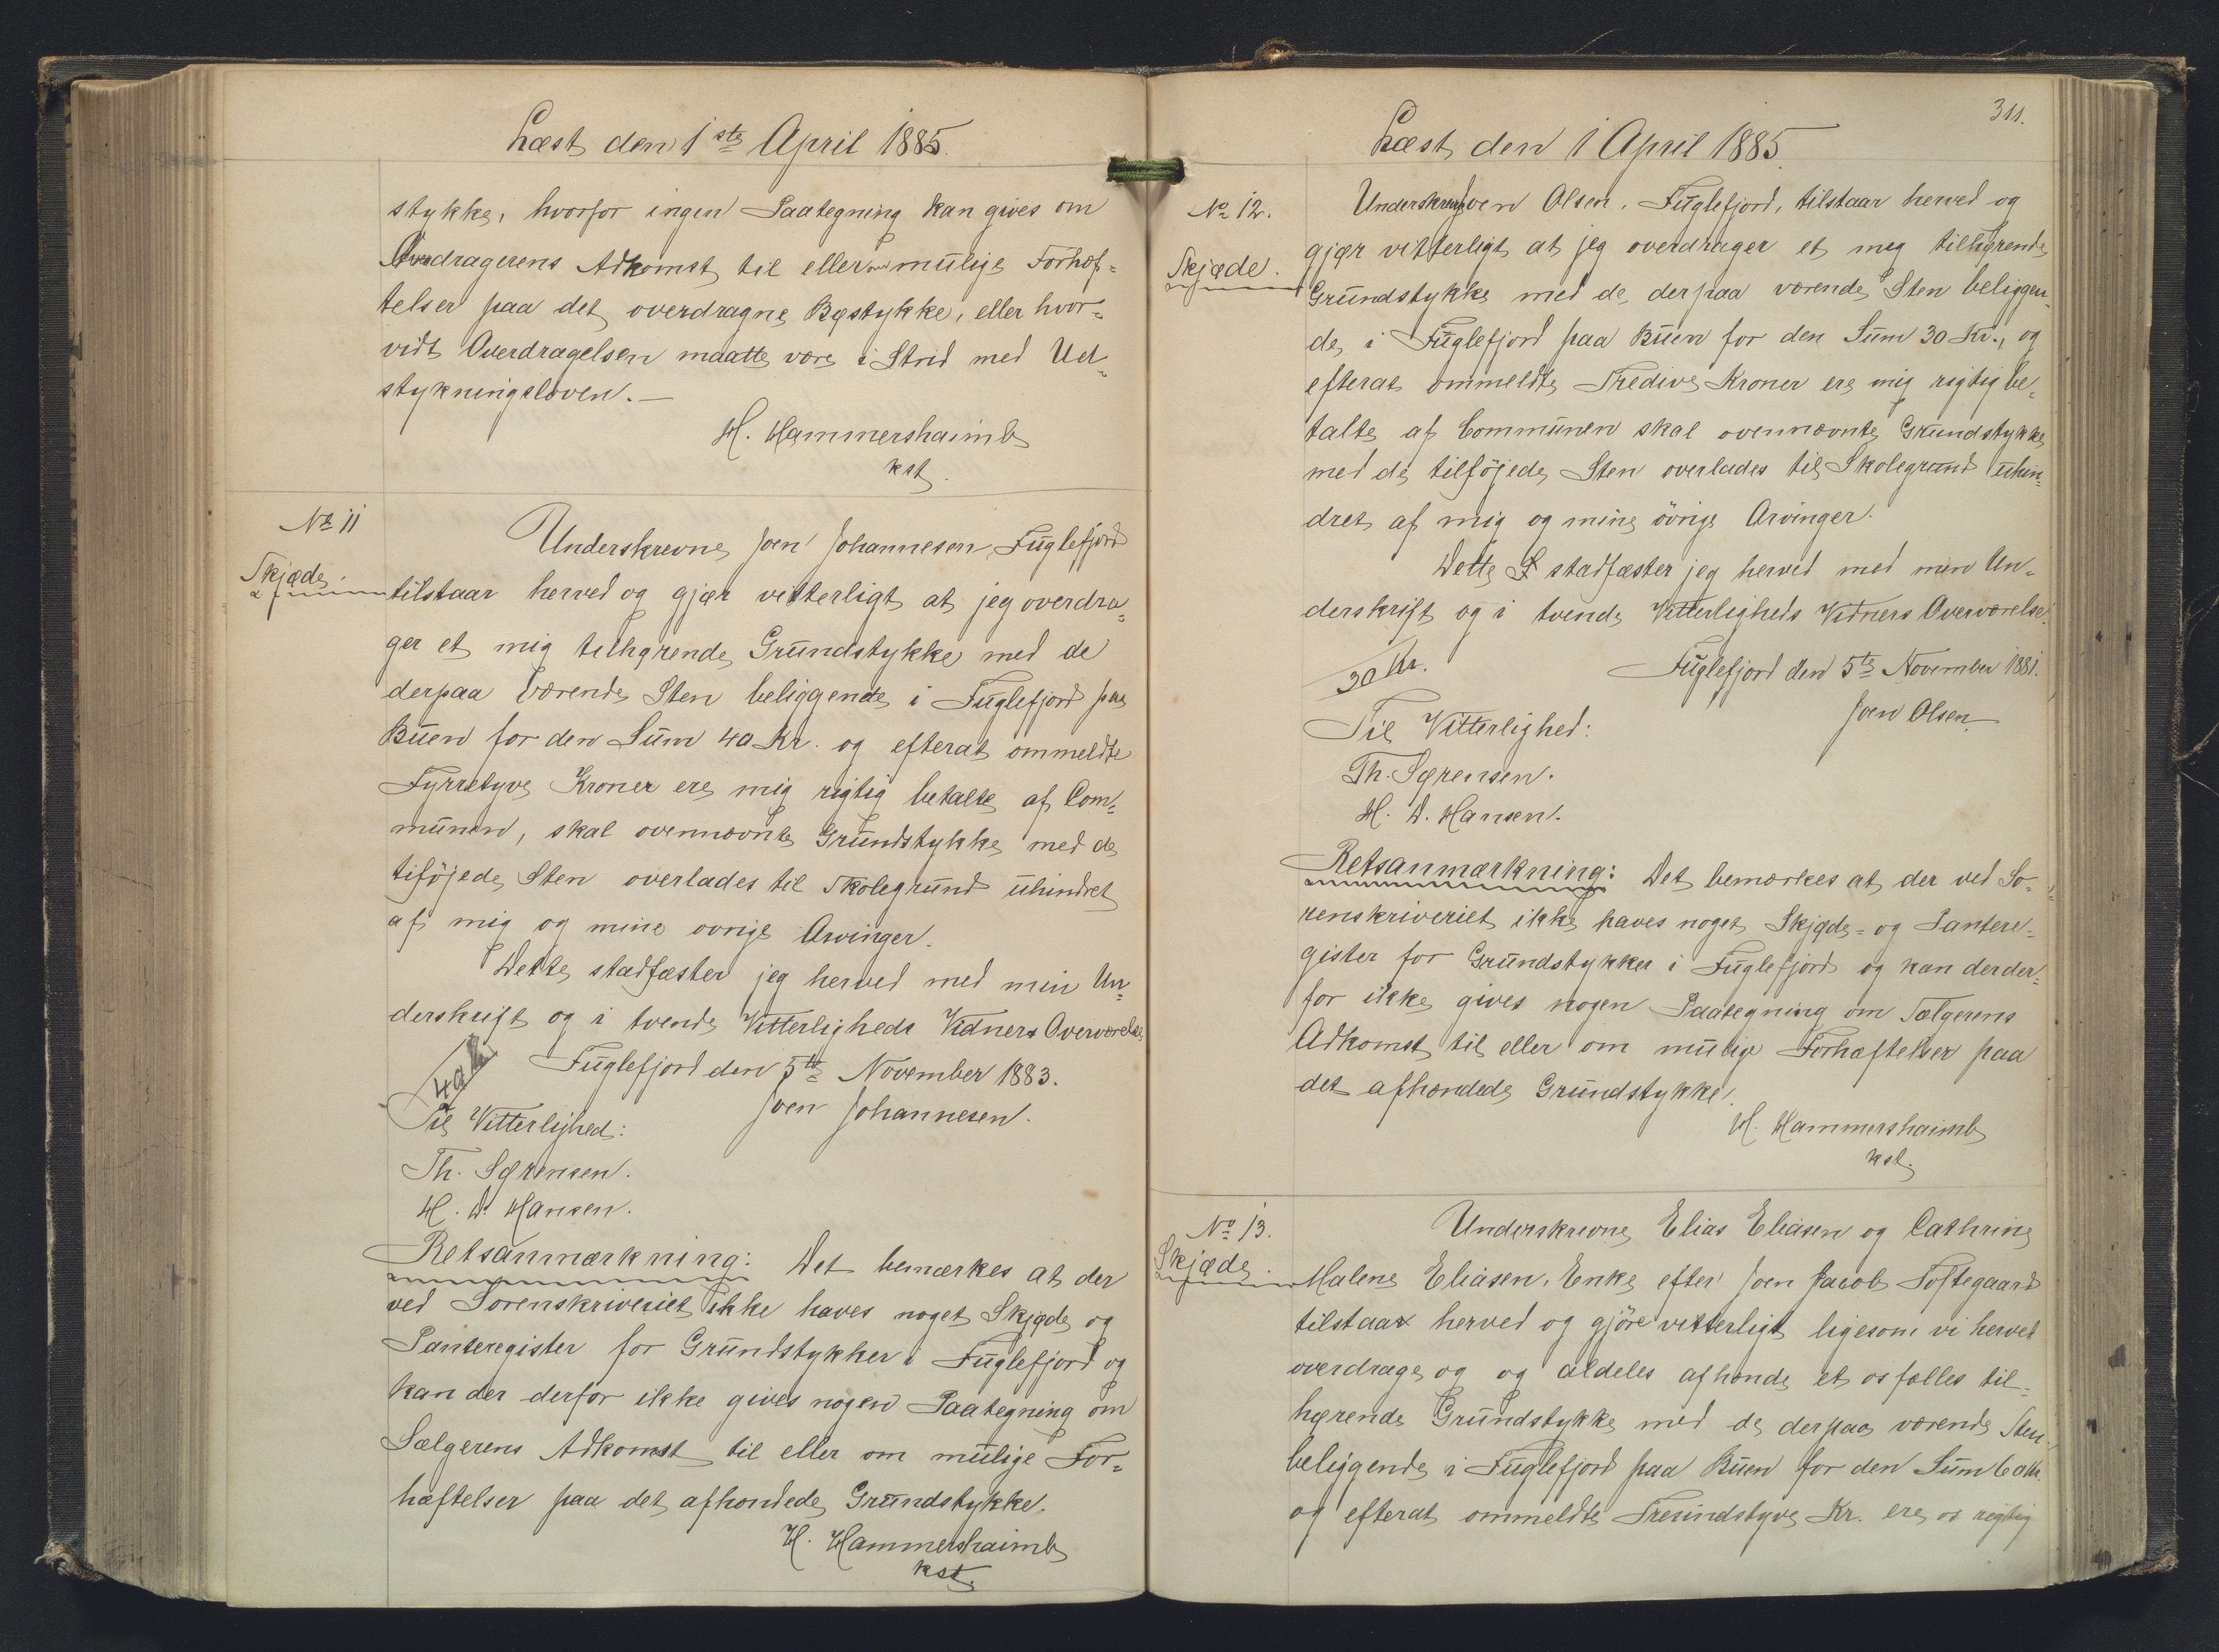 Læst den 1ste April 1885.
stykke, hvorfor ingen Paategning kan gives om
Overdragerens Adkomst til eller om mulige Forhæf=
telser paa det overdragne Bøstykke, eller hvor=
vidt Overdragelsen maatte være i Strid med Ud=
stykningsloven.—
H. Hammershaimb
kst.
No 11
Skjøde.
Underskrevne Joen Johannesen, Fuglefjord
tilstaar herved og gjør vitterligt at jeg overdra=
ger et mig tilhørende Grundstykke med de
derpaa værende Sten beliggende i Fuglefjord paa
Buen for den Sum 40 Kr. og efterat ommeldte
Fyrretyve Kroner ere mig rigtig betalte af Com=
munen, skal ovennævnte Grundstykke med de
tiføjede Sten overlades til Skolegrund uhindret
af mig og mine ovrige Arvinger.
Dette stadfæster jeg herved med min Un=
derskrift og i tvende Vitterligheds Vidners Overværelse
40 Kr.
Fuglefjord den 5te November 1883.
Joen Johannesen.
Til Vitterlighed:
Th. Sørensen.
H. D. Hansen.
Retsanmærkning: Det bemærkes at der
ved Sorenskriveriet ikke haves noget Skjøde og
Panteregister for Grundstykker i Fuglefjord og
kan der derfor ikke gives nogen Paategning om
Sælgerens Adkomst til eller om mulige For=
hæftelser paa det afhændede Grundstykke.
H. Hammershaimb
kst.
311.
Læst den 1 April 1885.
No 12.
Skjøde.
Joen Olsen, Fuglefjord, tilstaar herved og
gjør vitterligt at jeg overdrager et mig tilhørende
Grundstykke med de derpaa værende Sten beliggen=
de i Fuglefjord paa Buen for den Sum 30 Kr., og
efterat ommeldte Tredive Kroner ere mig rigtig be=
talte af Communen skal ovennævnte Grundstykke
med de tilföjede Sten overlades til Skolegrund uhin=
dret af mig og mine övrige Arvinger.
Dette stadfæster jeg herved med min Un=
derskrift og i tvende Vitterligheds Vidners Overværelse.
30 Kr.
Fuglefjord den 5te November 1881.
Joen Olsen
Til Vitterlighed:
Th. Sørensen.
H. D. Hansen.
Retsanmærkning: Det bemærkes at der ved So=
renskriveriet ikke haves noget Skjøde= og Pantere=
gister for Grundstykker i Fuglefjord og kan der der=
for ikke gives nogen Paategning om Sælgerens
Adkomst til eller om mulige Forhæftelser paa
det afhændede Grundstykke.
H. Hammershaimb
kst.
No 13.
Skjøde.
Underskrevne Elias Eliasen og Cathrine
Malene Eliasen, Enke efter Joen Jacob Toftegaard
tilstaar herved og gjöre vitterligt ligesom vi herved
overdrage og og aldeles afhænde et os fælles til=
hørende Grundstykke med de derpaa værende Sten
beliggende i Fuglefjord paa Buen for den Sum 60 Kr.
og efterat ommeldte Tresindstyve Kr. ere os rigtig